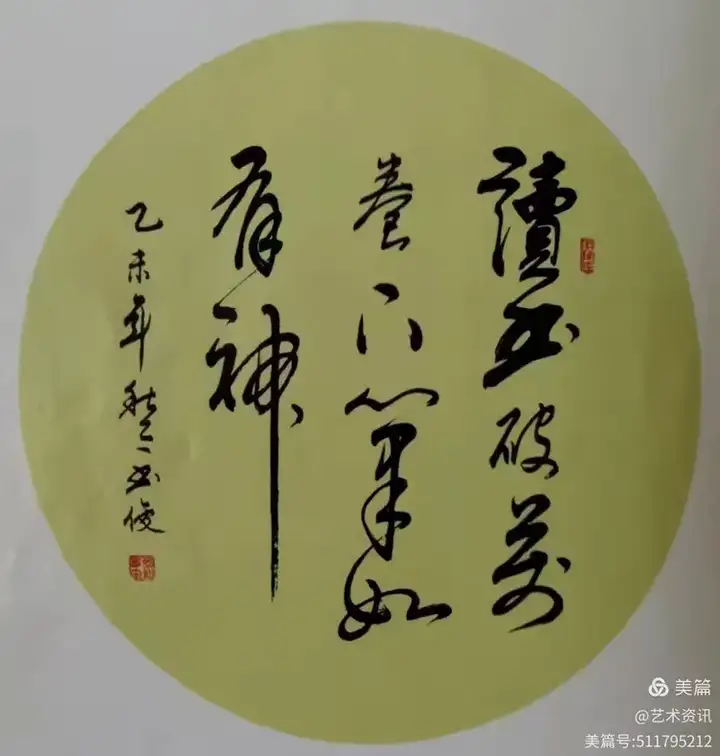 讀書破萬
卷下筆如
有神
乙未年
美篇
@艺术资讯
美篇号:511795212